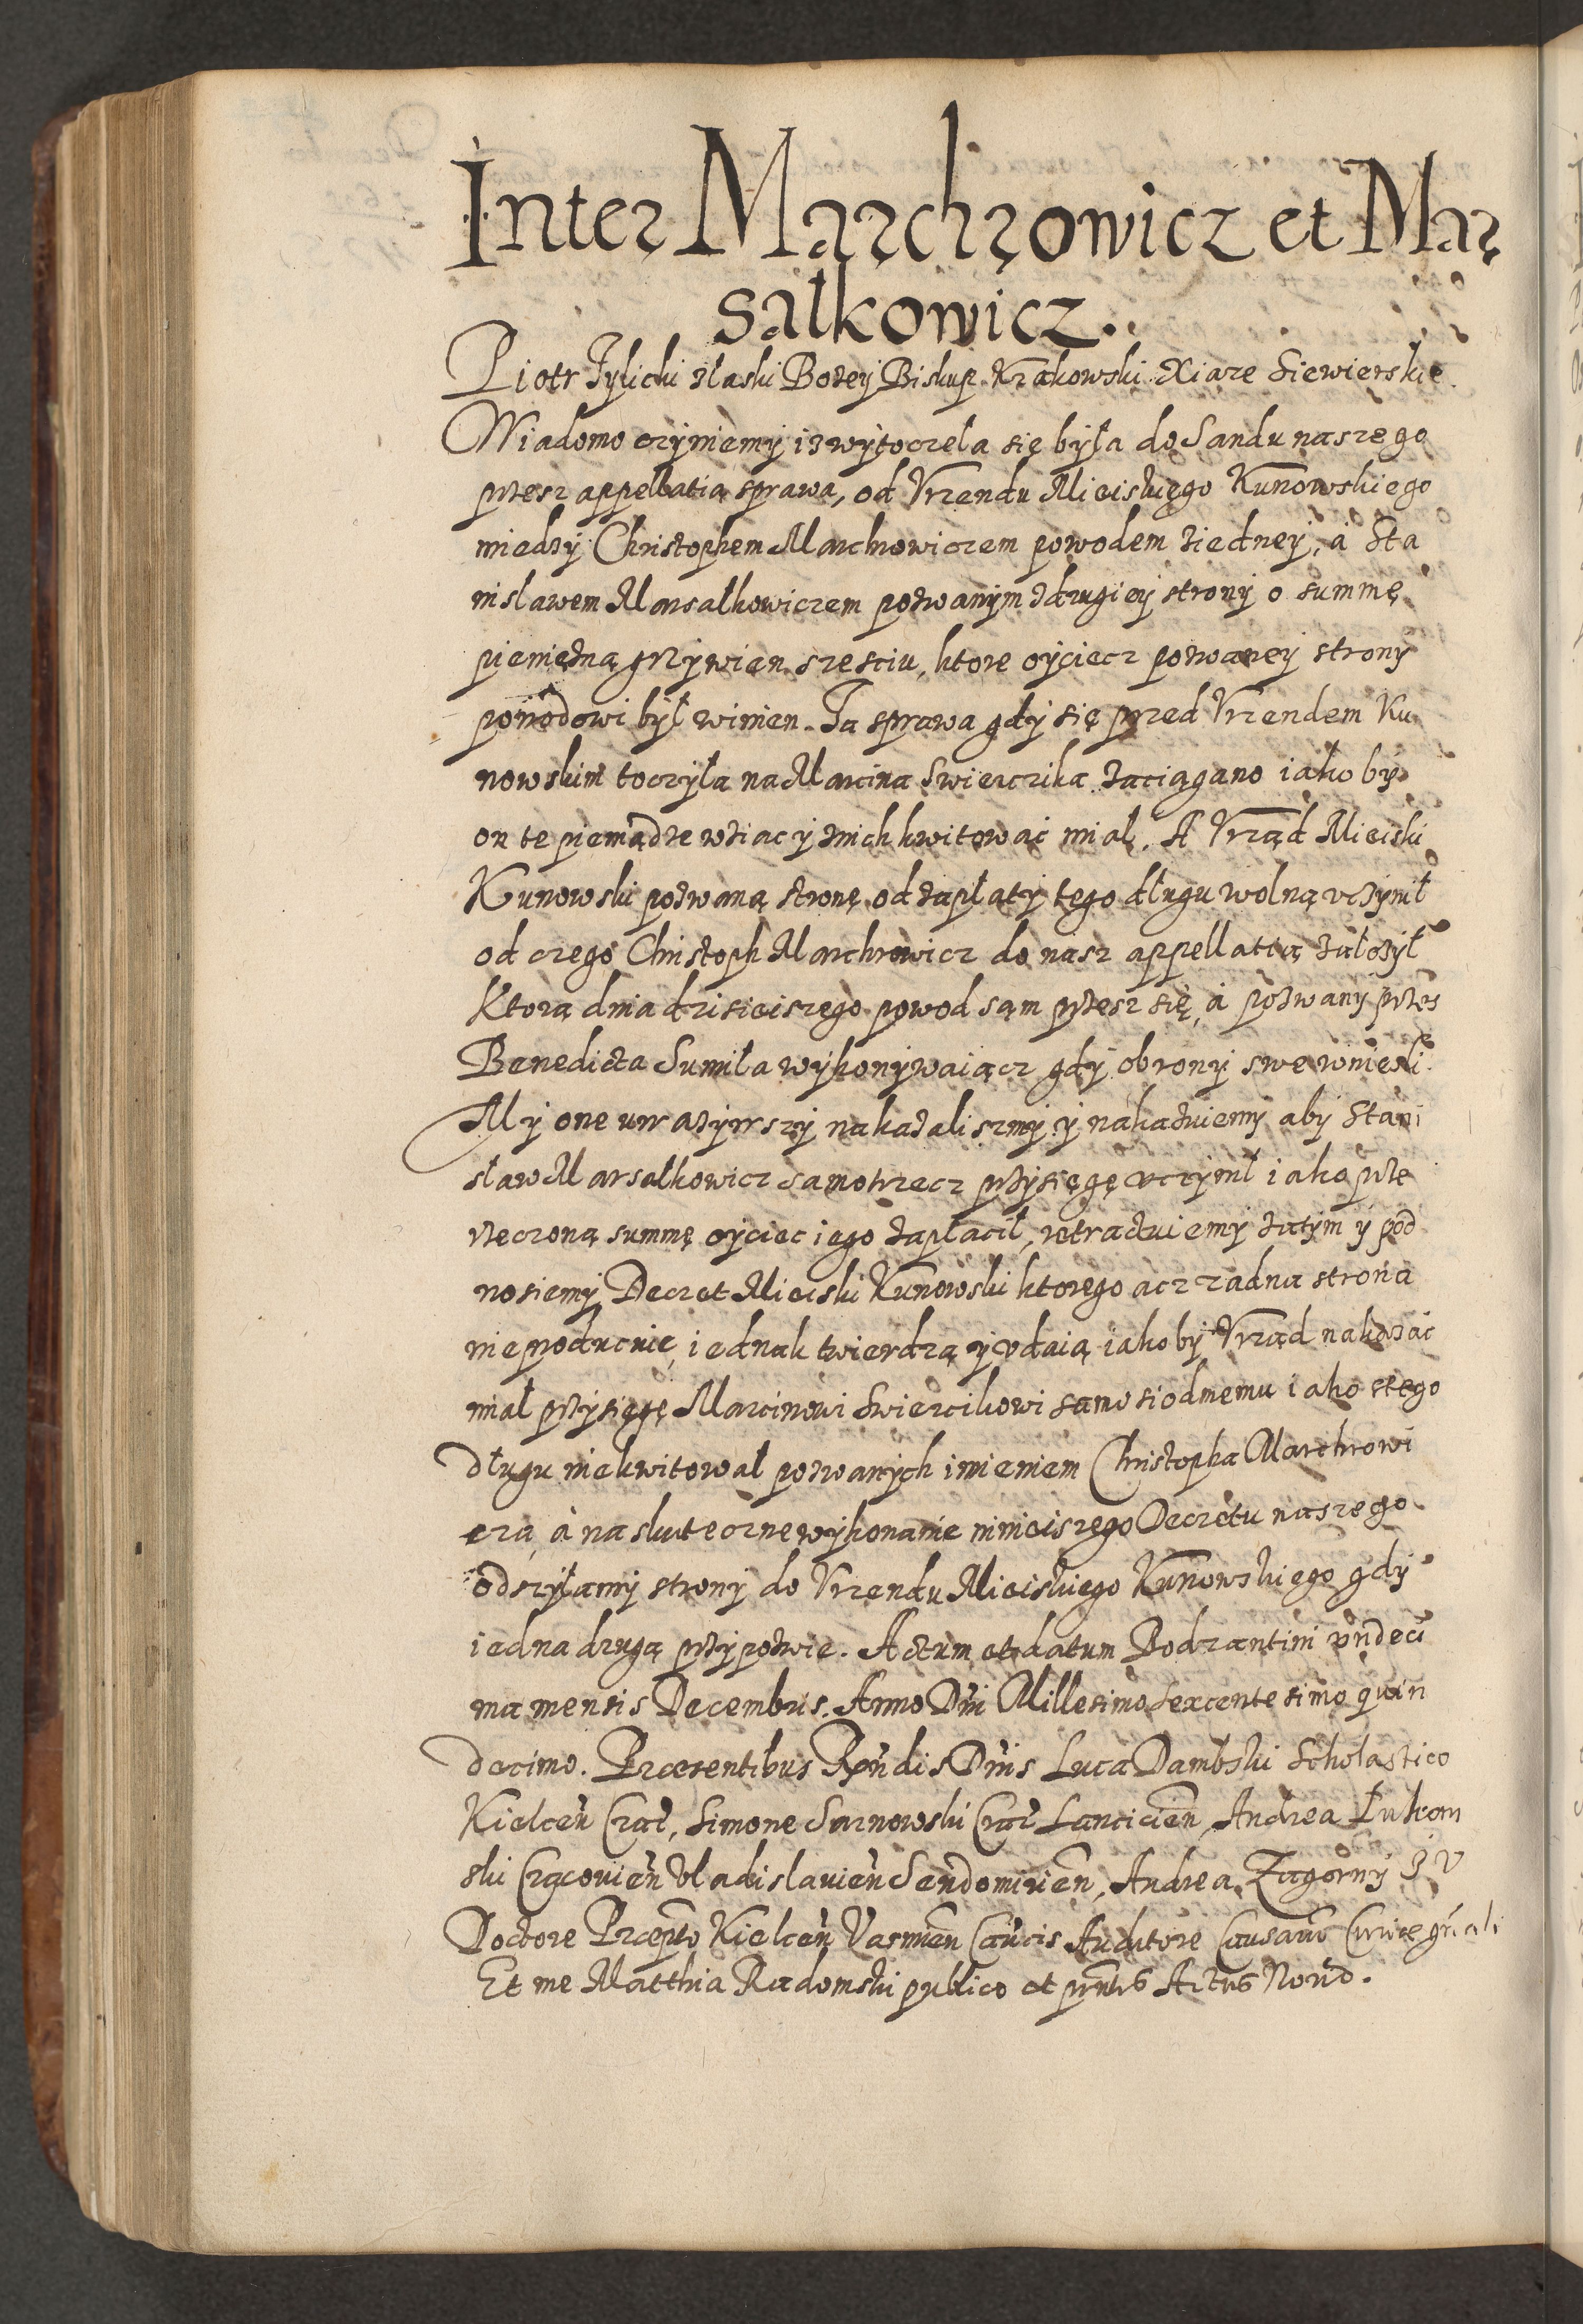 Inter Marchrowicz et Mar
sałkowicz.
Piotr Tylicki złaski Bozey Biskup Krakowski Xiąze Siewierskie
Wiadomo czyniemy iz wytoczeła się była do Sandu naszego
przesz appellatią sprawa, od Vrzendu Mieiskiego Kunowskiego
miedzy Christophem Marchrowiczem powodem ziedney, a Sta
nislawem Marsałkowiczem pozwanym zdrugiey strony o summę
pieniężną grzywien szesciu, ktore oyciecz pozwaney strony
powodowi był winien. Ta sprawa gdy się przed Vrzendem Ku
nowskim toczyła na Marcina Swierczika zaciągano iakoby
on te pieniądze wziac y znich kwitowac miał. A Vrząd Mieiski
Kunowski pozwaną stronę od zapłaty tego długu wolną vczynił
od czego Christoph Marchrowicz do nasz appellatią załozył
Ktorą dnia dzisieiszego powod sąm przesz się, á pozwany przes
Benedicta Sumiła wykonywaiącz gdy obrony swe wniesli.
My one uwazywszy nakazaliszmy y nakazuiemy aby Stani
sław Marsałkowicz samotrzecz przysięgę vczynił iako prze
rzeczoną summę oyciec iego zapłacił, retractuiemy zatym y pod
nosiemy Decret Mieiski Kunowski ktorego acz zadna strona
nieproducuie, iednak twierdzą y vdaią iakoby Vrząd nakazac
miał przysięgę Marcinowi Swiercikowi samosiodmemu iako stego
długu niekwitował pozwanych imieniem Christopha Marchrowi
cza, á na skuteczne wykonanie ninieiszego Decretu naszego
odszyłamy strony do Vrzendu Mieiskiego Kunowskiego gdy
iedna drugą przypozwie. Actum et datum Bodzantini vndeci
ma mensis Decembris. Anno Dni Millesimo Sexcentesimo quin
decimo. Præsentibus Rndis Dnis Luca Dambski Scholastico
Kielcen Crac, Simone Sarnowski Crac Lancicien, Andrea Łukom
ski Cracovien Vladislauien Sendomirien, Andrea Zagorny I V
Doctore Præpto Kielcen Varmien Cancis Auditore Causarum Curiæ gnali
Et me Matthia Radomski publico et pntis Actus Notrio.